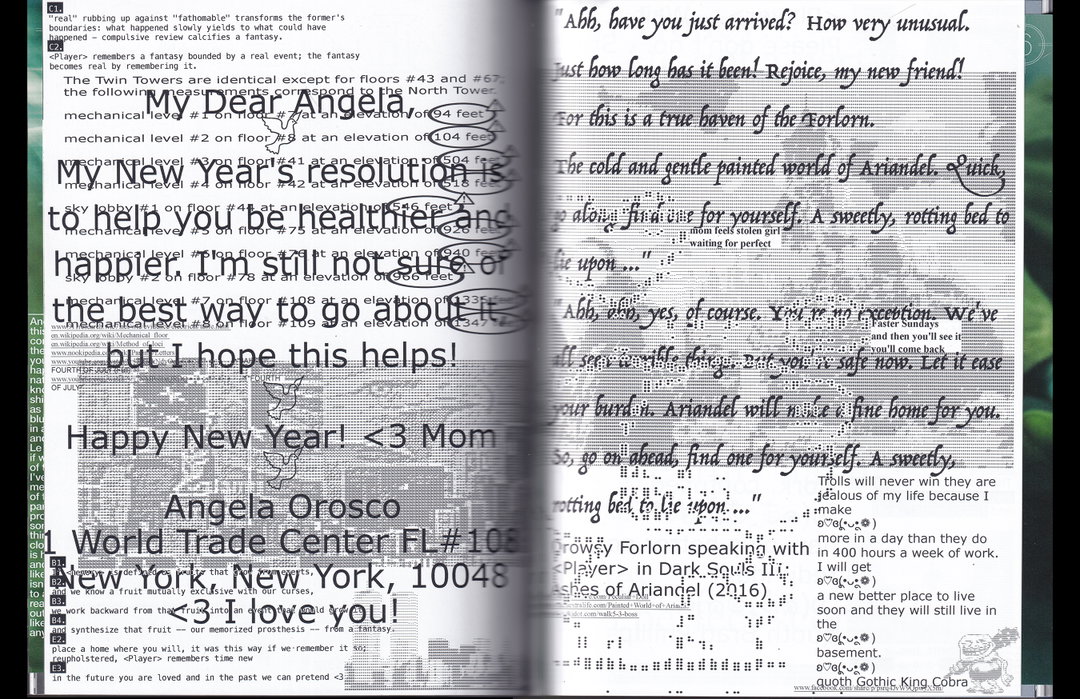 C1.
"real" rubbing up against "fathomable" transforms the former's
boundaries: what happened slowly yields to what could have
happened — compulsive review calcifies a fantasy.
C2.
<Player> remembers a fantasy bounded by a real event; the fantasy
becomes real by remembering it.
The Twin Towers are identical except for floors #43 and #67;
the following measurements correspond to the North Tower.
My Dear Angela,
mechanical level #1 on floor #7 at an elevation of 94 feet
mechanical level #2 on floor #8 at an elevation of 104 feet
mechanical level #3 on floor #41 at an elevation of 504 feet
My New Year's resolution is
mechanical level #4 on floor #42 at an elevation of 518 feet
sky lobby #1 on floor #44 at an elevation of 546 feet
to help you be healthier and
mechanical level #5 on floor #75 at an elevation of 926 feet
mechanical level #6 on floor #76 at an elevation of 940 feet
happier. I'm still not sure of
sky lobby #2 on floor #78 at an elevation of 966 feet
mechanical level #7 on floor #108 at an elevation of 1335
the best way to go about it,
mechanical level #8 on floor #109 at an elevation of 1347
en.wikipedia.org/wiki/Mechanical_floor
but I hope this helps!
FOURTH OF JULY
OF JULY
Happy New Year! <3 Mom
Angela Orosco
1 World Trade Center FL#108
New York, New York, 10048
<3 I love you!
B1.
B2.
and we know a fruit mutually exclusive with our curses,
B3.
we work backward from that fruit into an event that would grow
B4.
and synthesize that fruit -- our memorized prosthesis -- from a fantasy.
E2.
place a home where you will, it was this way if we remember it so;
reupholstered, <Player> remembers time new
E3.
in the future you are loved and in the past we can pretend <3
"Ahh, have you just arrived? How very unusual.
Just how long has it been! Rejoice, my new friend!
For this is a true haven of the Forlorn.
The cold and gentle painted world of Ariandel. Quick,
go along, find one for yourself. A sweetly, rotting bed to
mom feels stolen girl
waiting for perfect
lie upon ..."
"Ahh, ohh, yes, of course. You're no exception. We've
Easter Sundays
and then you'll see it
you'll come back
all seen terrible things. But you're safe now. Let it ease
your burden. Ariandel will make a fine home for you.
So, go on ahead, find one for yourself. A sweetly,
rotting bed to lie upon ..."
Drowsy Forlorn speaking with
<Player> in Dark Souls III:
Ashes of Ariandel (2016)
Trolls will never win they are
jealous of my life because I
make
ʚ♡ɞ(•ᴗ•❁)
more in a day than they do
in 400 hours a week of work.
I will get
ʚ♡ɞ(•ᴗ•❁)
a new better place to live
soon and they will still live in
the
ʚ♡ɞ(•ᴗ•❁)
basement.
ʚ♡ɞ(•ᴗ•❁)
quoth Gothic King Cobra